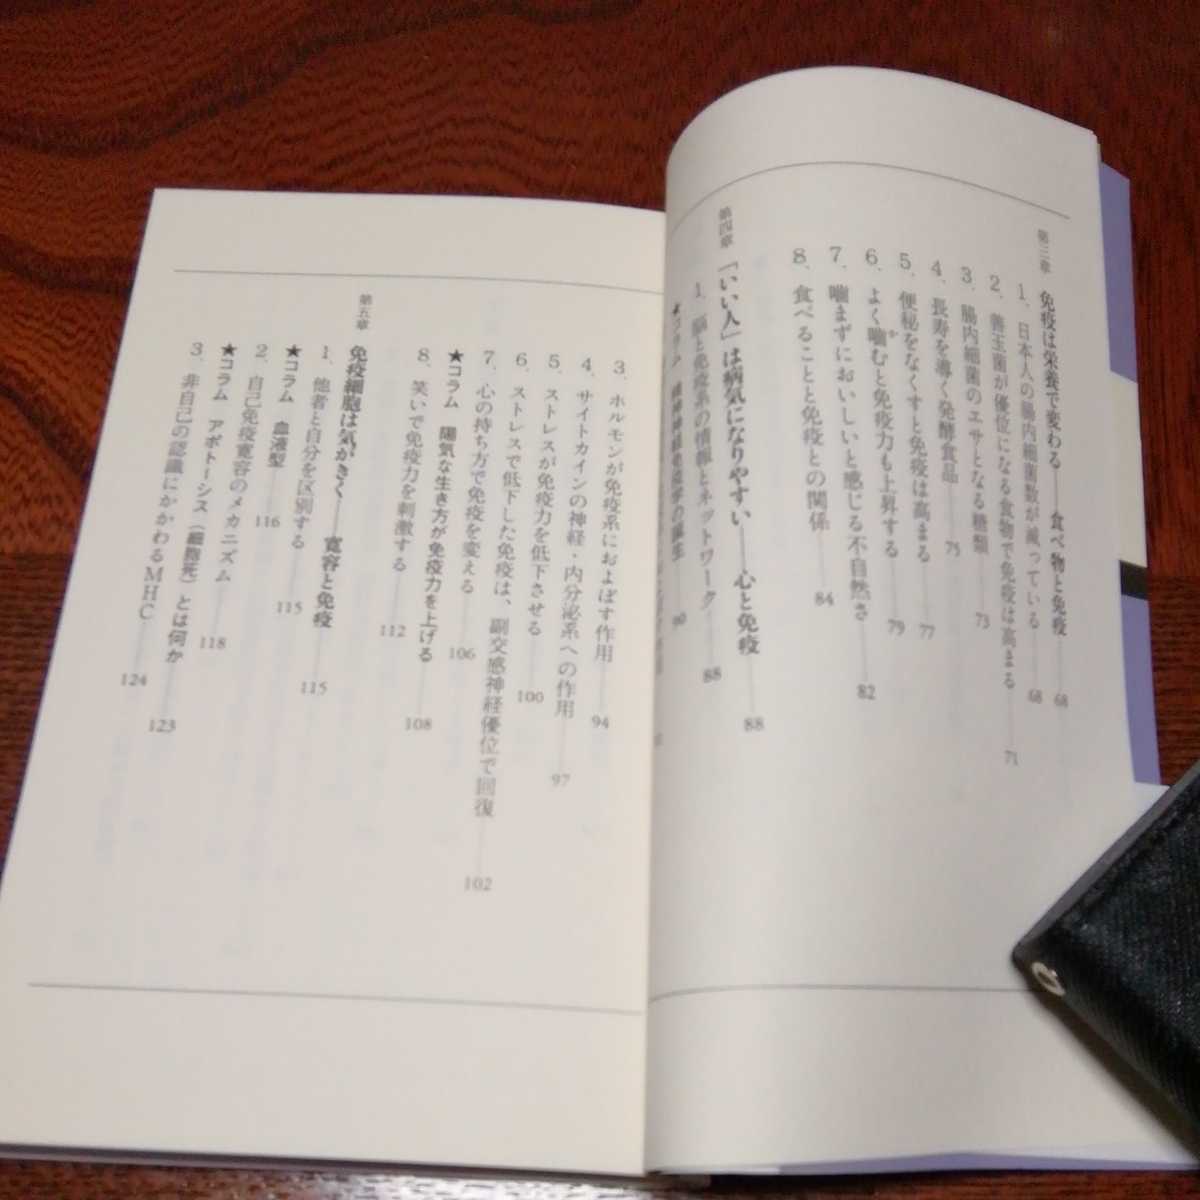 第三章 免疫は栄養で変わる——食べ物と免疫——68
1、日本人の腸内細菌数が減っている——68
2、善玉菌が優位になる食物で免疫は高まる——71
3、腸内細菌のエサとなる糖類——73
4、長寿を導く発酵食品——75
5、便秘をなくすと免疫は高まる——77
6、よく噛むと免疫力も上昇する——79
7、噛まずにおいしいと感じる不自然さ——82
8、食べることと免疫との関係——84
第四章 「いい人」は病気になりやすい——心と免疫——88
1、脳と免疫系の情報とネットワーク——88
★コラム 精神神経免疫学の誕生——90
3、ホルモンが免疫系におよぼす作用——94
4、サイトカインの神経・内分泌系への作用——97
5、ストレスが免疫力を低下させる——100
6、ストレスで低下した免疫は、副交感神経優位で回復——102
7、心の持ち方で免疫を変える——106
★コラム 陽気な生き方が免疫力を上げる——108
8、笑いで免疫力を刺激する——112
第五章 免疫細胞は気がきく——寛容と免疫——115
1、他者と自分を区別する——115
★コラム 血液型——116
2、自己免疫寛容のメカニズム——118
★コラム アポトーシス(細胞死)とは何か——123
3、非自己の認識にかかわるMHC——124